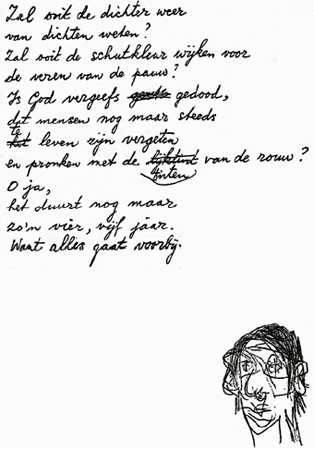 Zal ooit de dichter weer
van dichten weten?
Zal ooit de schutkleur wijken voor
de veren van de pauw?
Is God vergeefs gedood,
dat mensen nog maar steeds
te leven zijn vergeten
en pronken met de tinten van de rouw?
O ja,
het duurt nog maar
zo'n vier, vijf jaar.
Want alles gaat voorbij.